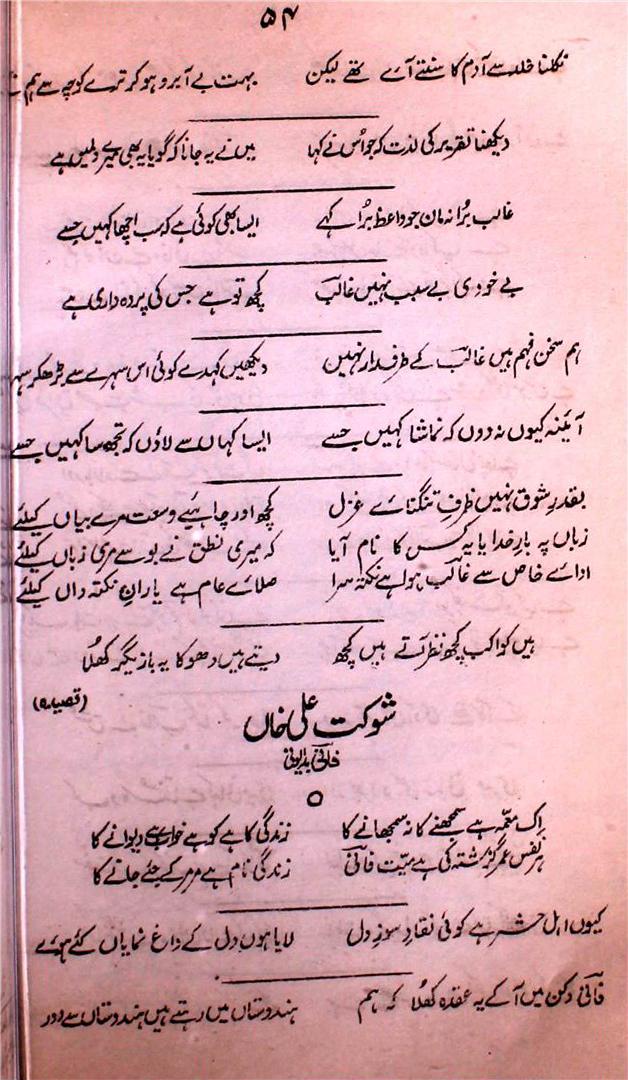 ۵۴
نکلنا خلد سے آدم کا سنتے آے تھے لیکن بہت بے آبرو ہو کر ترے کوچہ سے ہم
دیکھنا تقریر کی لذت کہ جو اُس نے کہا میں نے یہ جانا کہ گویا یہ بھی میرے دلمیں ہے
غالب بُرا نہ مان جو واعظ بُرا کہے ایسا بھی کوئی ہے کہ سب اچھا کہیں جسے
بے خودی بے سبب نہیں غالب کچھ تو ہے جس کی پردہ داری ہے
ہم سخن فہم ہیں غالب کے طرفدار نہیں دیکھیں کہدے کوئی اس سہرے سے بڑھکر سہرا
آئنہ کیوں نہ دوں کہ تماشا کہیں جسے ایسا کہاں سے لاؤں کہ تجھ سا کہیں جسے
بقدرِ شوق نہیں ظرفِ تنگناے غزل کچھ اور چاہئیے وسعت مرے بیاں کیلئے
زباں پہ بارِ خدا یا یہ کس کا نام آیا کہ میری نطق نے بوسے مری زباں کیلئے
اداے خاص سے غالب ہوا ہے نکتہ سرا صلاے عام ہے یارانِ نکتہ داں کیلئے
ہیں کواکب کچھ نظر آتے ہیں کچھ دیتے ہیں دھوکا یہ بازیگر کھُلا
(قصیدہ)
شوکت علی خاں
فانی بدایونی
اِک معمّہ ہے سمجھنے کا نہ سمجھانے کا زندگی کا ہے کو ہے خواب ہے دیوانے کا
ہر نفس عمرِ گزشتہ کی ہے میّت فانی زندگی نام ہے مر مر کے جئے جانے کا
کیوں اہل حشر ہے کوئی نقادِ سوزِ دل لایا ہوں دل کے داغ نمایاں کئے ہوے
فانی دکن میں آ کے یہ عقدہ کھُلا کہ ہم ہندوستاں میں رہتے ہیں ہندوستاں سے دور